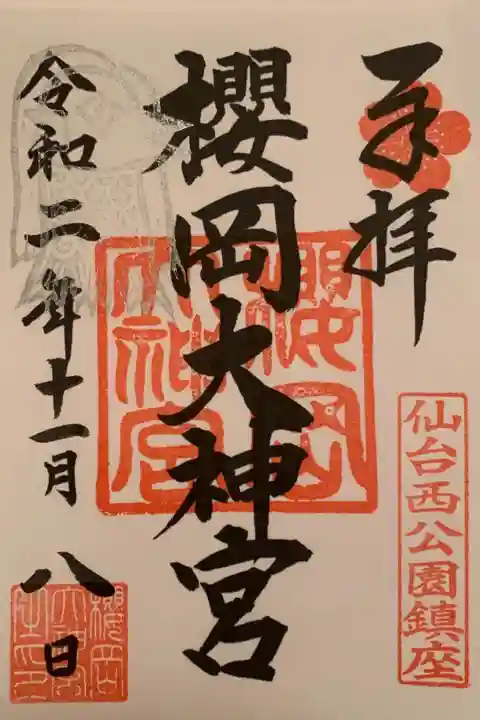 奉拝
仙台西公園鎮座
櫻岡大神宮
櫻岡大神宮
令和二年十一月八日